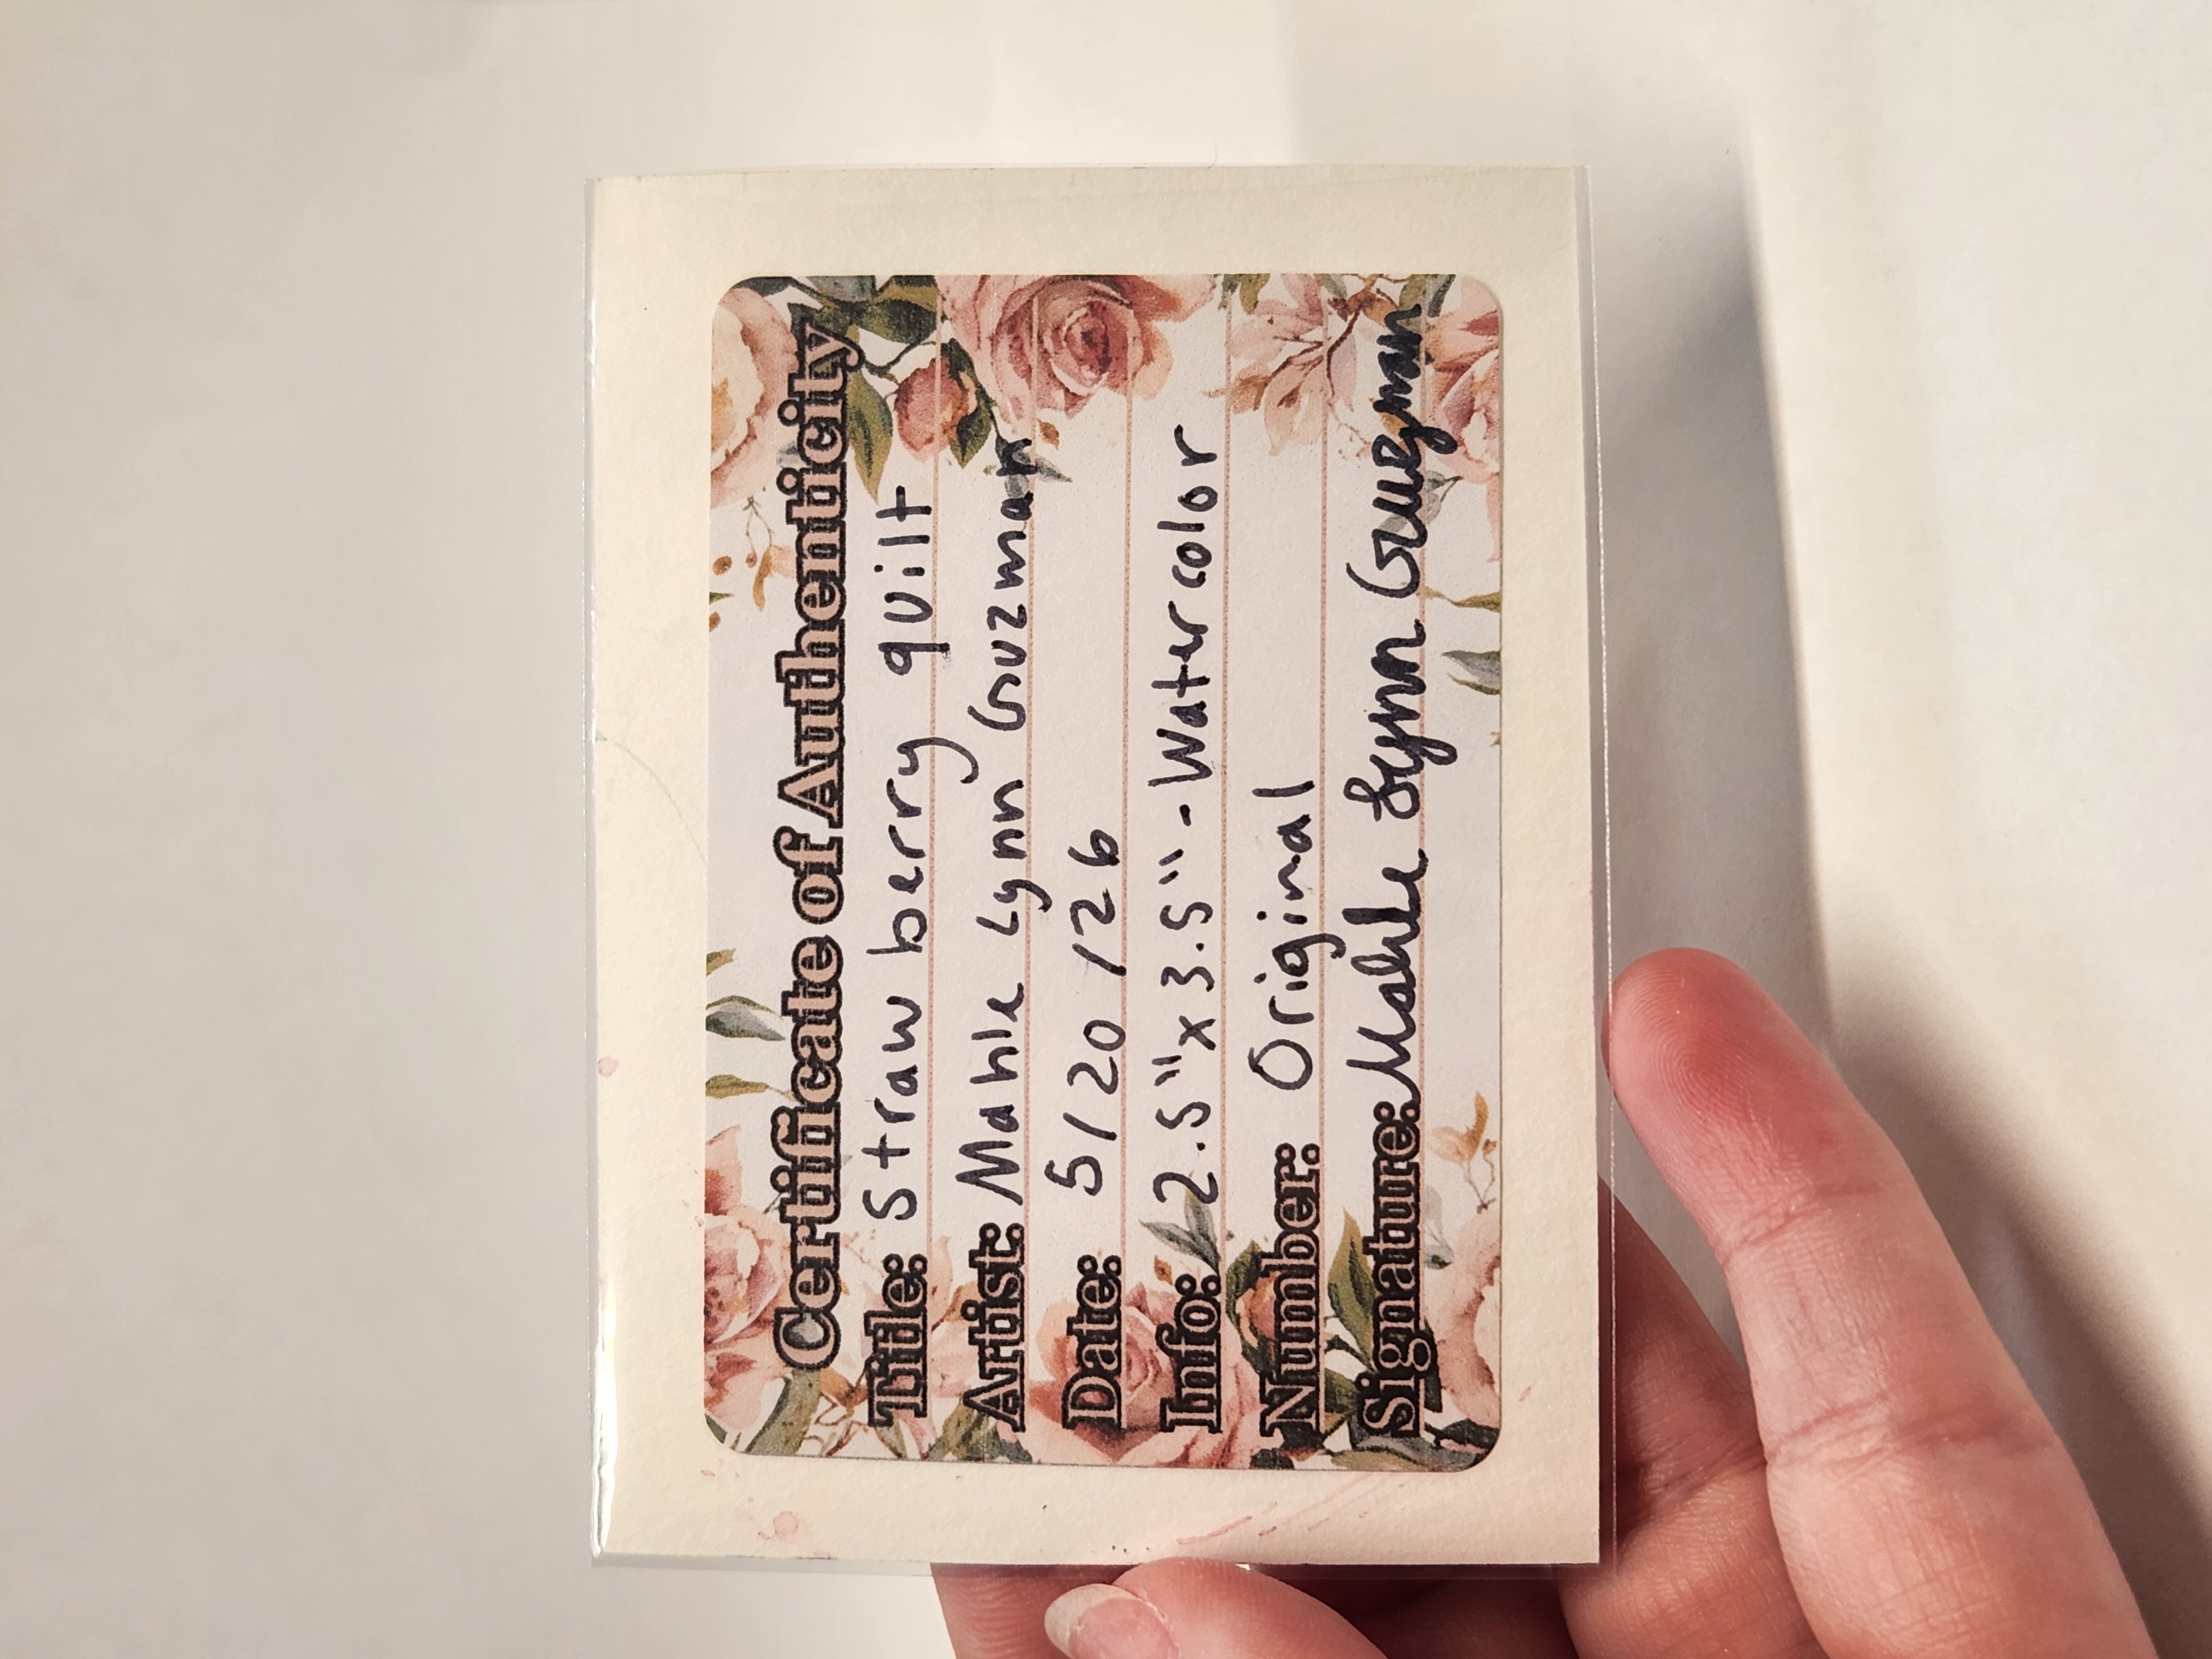 Certificate of Authenticity
Title: Strawberry quilt
Artist: Mahle Lynn Guzman
Date: 5/20/26
Info: 2.5"x3.5"-Watercolor
Number: Original
Signature: Mahle Lynn Guzman